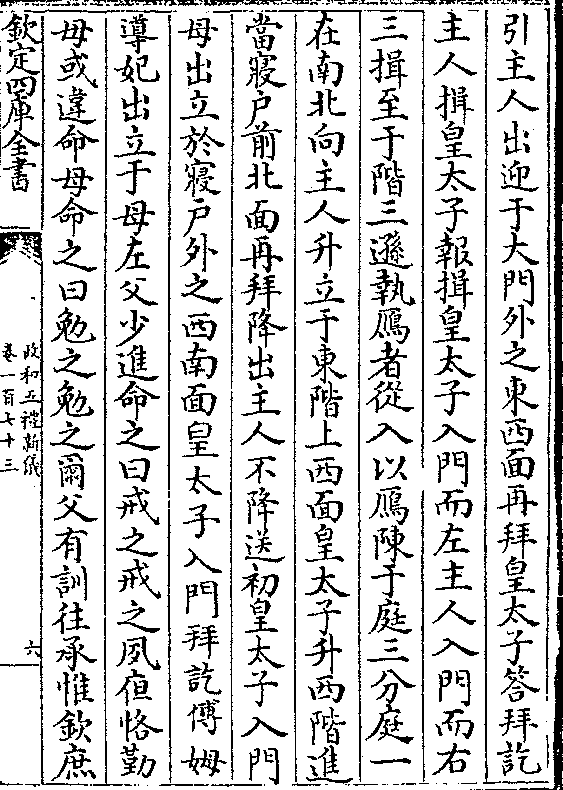 引主人出迎于大門外之東西面再拜皇太子答拜訖
主人揖皇太子報揖皇太子入門而左主人入門而右
三揖至于階三遜執鴈者從入以鴈陳于庭三分庭一
在南北向主人升立于東階上西面皇太子升西階進
當寢户前北面再拜降出主人不降送初皇太子入門
母出立於寢户外之西南面皇太子入門拜訖傅姆
導妃出立于母左父少進命之曰戒之戒之夙夜恪勤
毋或違命母命之曰勉之勉之爾父有訓往承惟欽庶
欽定四庫全書
政和五禮新儀
卷一百七十三
六